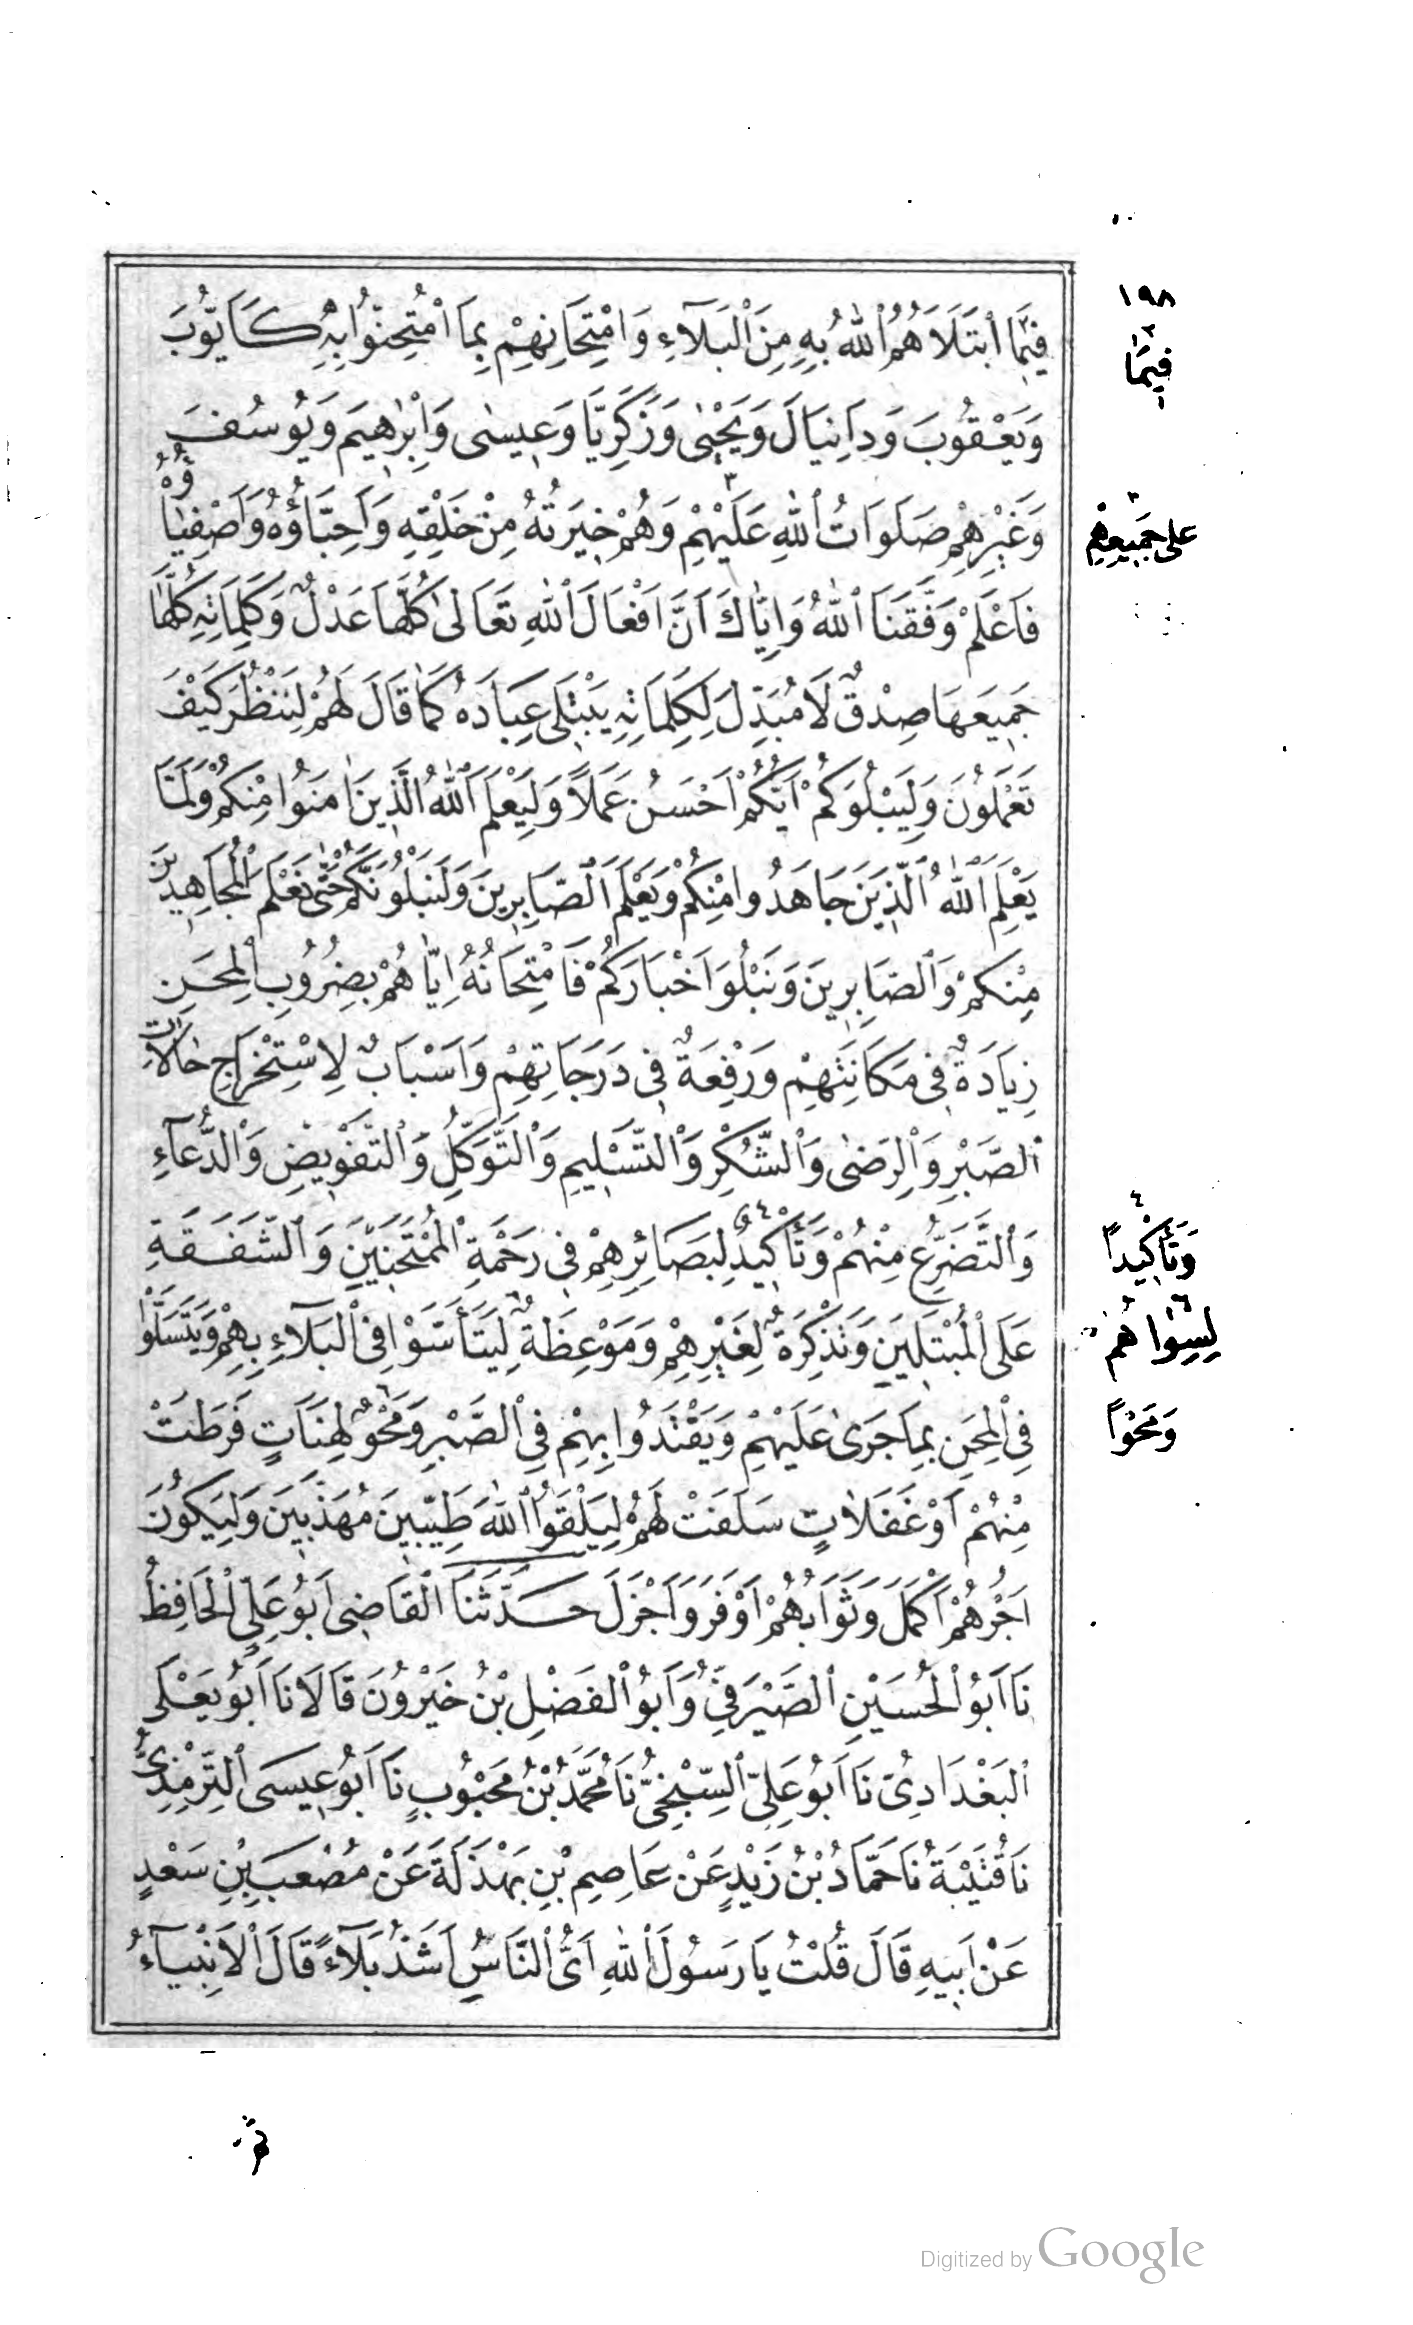 ١٩٨
فِيمَا ٱبْتَلَاهُمُ ٱللّٰهُ بِهِ مِنَ ٱلْبَلَآءِ وَٱمْتِحَانِهِمْ بِمَا ٱمْتُحِنُوا بِهِ كَاَيُّوبَ
فِيمَا
وَيَعْقُوبَ وَدَانِيَالَ وَيَحْيٰى وَزَكَرِيَّا وَعِيسٰى وَاِبْرٰهِيمَ وَيُوسُفَ
وَغَيْرِهِمْ صَلَوَاتُ ٱللّٰهِ عَلَيْهِمْ وَهُمْ خِيَرَتُهُ مِنْ خَلْقِهِ وَاَحِبَّاؤُهُ وَاَصْفِيَاؤُهُ
عَلٰى جَمِيعِهِمْ
فَاعْلَمْ وَفَّقَنَا ٱللّٰهُ وَاِيَّاكَ اَنَّ اَفْعَالَ ٱللّٰهِ تَعَالٰى كُلَّهَا عَدْلٌ وَكَلِمَاتِهِ كُلَّهَا
جَمِيعَهَا صِدْقٌ لَا مُبَدِّلَ لِكَلِمَاتِهِ يَبْتَلِى عِبَادَهُ كَمَا قَالَ لَهُمْ لِنَنْظُرَ كَيْفَ
تَعْمَلُونَ وَلِيَبْلُوَكُمْ اَيُّكُمْ اَحْسَنُ عَمَلًا وَلِيَعْلَمَ ٱللّٰهُ ٱلَّذِينَ اٰمَنُوا مِنْكُمْ وَلَمَّا
يَعْلَمِ ٱللّٰهُ ٱلَّذِينَ جَاهَدُوا مِنْكُمْ وَيَعْلَمَ ٱلصَّابِرِينَ وَلَنَبْلُوَنَّكُمْ حَتّٰى نَعْلَمَ ٱلْمُجَاهِدِينَ
مِنْكُمْ وَٱلصَّابِرِينَ وَنَبْلُوَ اَخْبَارَكُمْ فَامْتِحَانُهُ اِيَّاهُمْ بِضُرُوبِ ٱلْمِحَنِ
زِيَادَةٌ فِى مَكَانَتِهِمْ وَرِفْعَةٌ فِى دَرَجَاتِهِمْ وَاَسْبَابٌ لِاسْتِخْرَاجِ حَالَاتِ
ٱلصَّبْرِ وَٱلرِّضٰى وَٱلشُّكْرِ وَٱلتَّسْلِيمِ وَٱلتَّوَكُّلِ وَٱلتَّفْوِيضِ وَٱلدُّعَآءِ
وَٱلتَّضَرُّعِ مِنْهُمْ وَتَأْكِيدٌ لِبَصَائِرِهِمْ فِى رَحْمَةِ ٱلْمُمْتَحَنِينَ وَٱلشَّفَقَةِ
وَتَأْكِيدًا
عَلَى ٱلْمُبْتَلِينَ وَتَذْكِرَةٌ لِغَيْرِهِمْ وَمَوْعِظَةٌ لِيَتَأَسَّوْا فِى ٱلْبَلَآءِ بِهِمْ وَيَتَسَلَّوْا
لِسِوَاهُمْ
فِى ٱلْمِحَنِ بِمَا جَرٰى عَلَيْهِمْ وَيَقْتَدُوا بِهِمْ فِى ٱلصَّبْرِ وَمَحْوٌ لِهَنَاتٍ فَرَطَتْ
وَمَحْوًا
مِنْهُمْ اَوْ غَفَلَاتٍ سَلَفَتْ لَهُمْ لِيَلْقَوُا ٱللّٰهَ طَيِّبِينَ مُهَذَّبِينَ وَلِيَكُونَ
اَجْرُهُمْ اَكْمَلَ وَثَوَابُهُمْ اَوْفَرَ وَاَجْزَلَ حَدَّثَنَا ٱلْقَاضِى اَبُو عَلِىٍّ ٱلْحَافِظُ
نَا اَبُو ٱلْحُسَيْنِ ٱلصَّيْرَفِىُّ وَاَبُو ٱلْفَضْلِ بْنُ خَيْرُونَ قَالَا نَا اَبُو يَعْلَى
ٱلْبَغْدَادِىُّ نَا اَبُو عَلِىٍّ ٱلسِّنْجِىُّ نَا مُحَمَّدُ بْنُ مَحْبُوبٍ نَا اَبُو عِيسَى ٱلتِّرْمِذِىُّ
نَا قُتَيْبَةُ نَا حَمَّادُ بْنُ زَيْدٍ عَنْ عَاصِمِ بْنِ بَهْدَلَةَ عَنْ مُصْعَبِ بْنِ سَعْدٍ
عَنْ اَبِيهِ قَالَ قُلْتُ يَا رَسُولَ ٱللّٰهِ اَىُّ ٱلنَّاسِ اَشَدُّ بَلَآءً قَالَ ٱلْاَنْبِيَآءُ
ثُمَّ
Digitized by Google